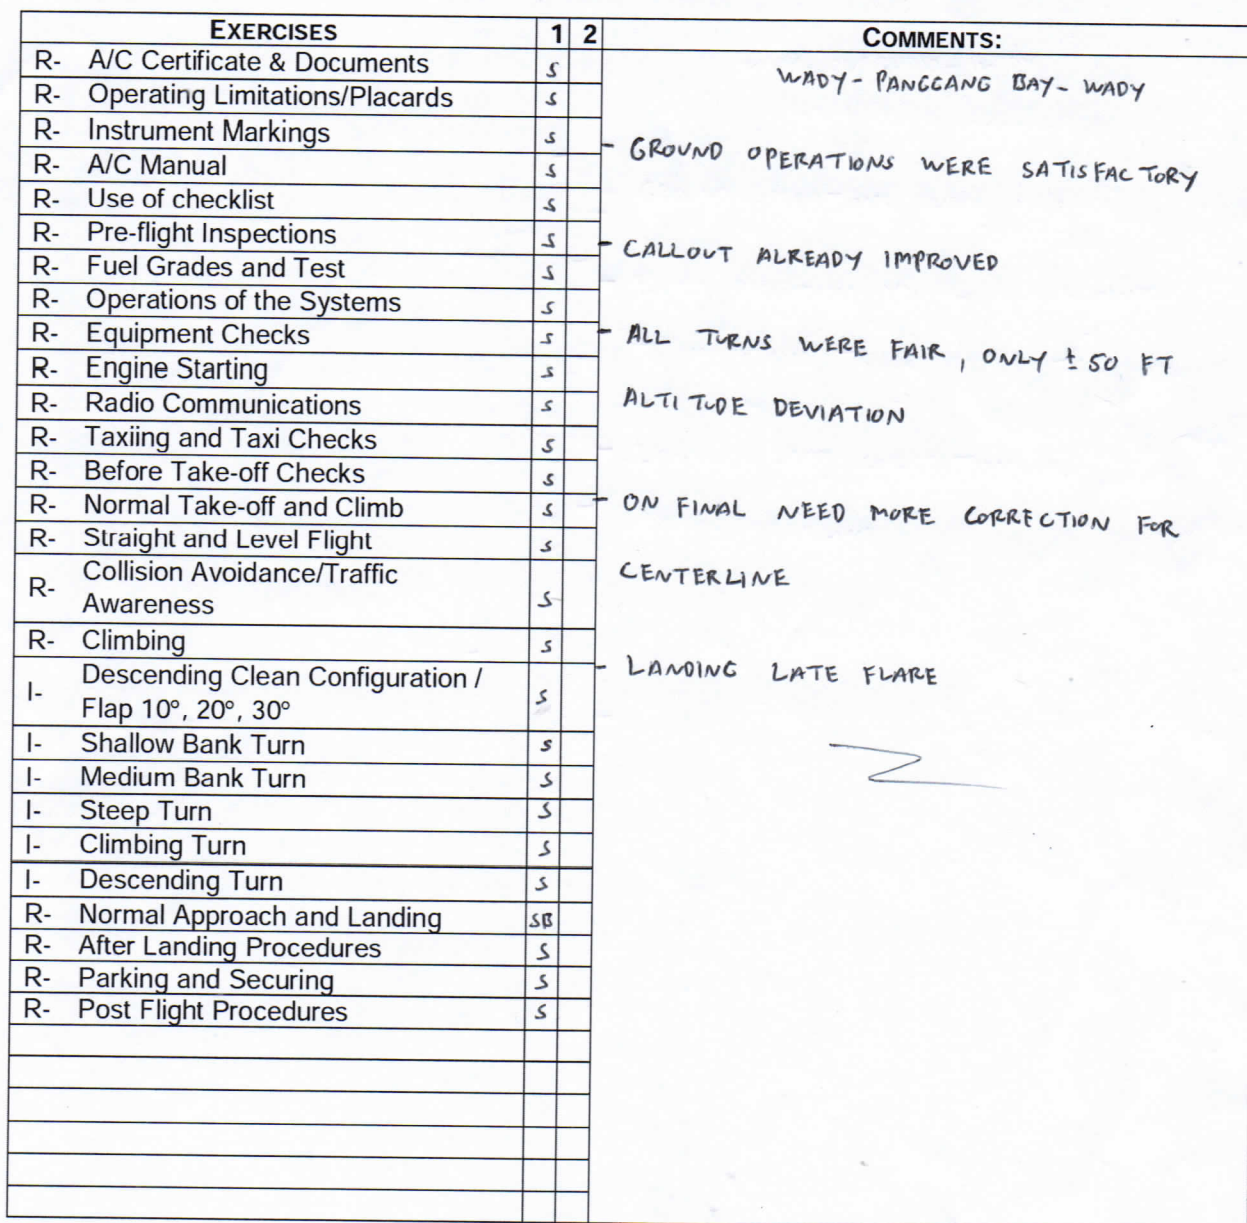 EXERCISES 1 2 COMMENTS:
R- A/C Certificate & Documents S
R- Operating Limitations/Placards S
R- Instrument Markings S
R- A/C Manual S
R- Use of checklist S
R- Pre-flight Inspections S
R- Fuel Grades and Test S
R- Operations of the Systems S
R- Equipment Checks S
R- Engine Starting S
R- Radio Communications S
R- Taxiing and Taxi Checks S
R- Before Take-off Checks S
R- Normal Take-off and Climb S
R- Straight and Level Flight S
R- Collision Avoidance/Traffic
Awareness S
R- Climbing S
I- Descending Clean Configuration /
Flap 10°, 20°, 30° S
I- Shallow Bank Turn S
I- Medium Bank Turn S
I- Steep Turn S
I- Climbing Turn S
I- Descending Turn S
R- Normal Approach and Landing SB
R- After Landing Procedures S
R- Parking and Securing S
R- Post Flight Procedures S
WADY - PANGGANG BAY - WADY
- GROUND OPERATIONS WERE SATISFACTORY
- CALLOUT ALREADY IMPROVED
- ALL TURNS WERE FAIR, ONLY ± 50 FT
ALTITUDE DEVIATION
- ON FINAL NEED MORE CORRECTION FOR
CENTERLINE
- LANDING LATE FLARE